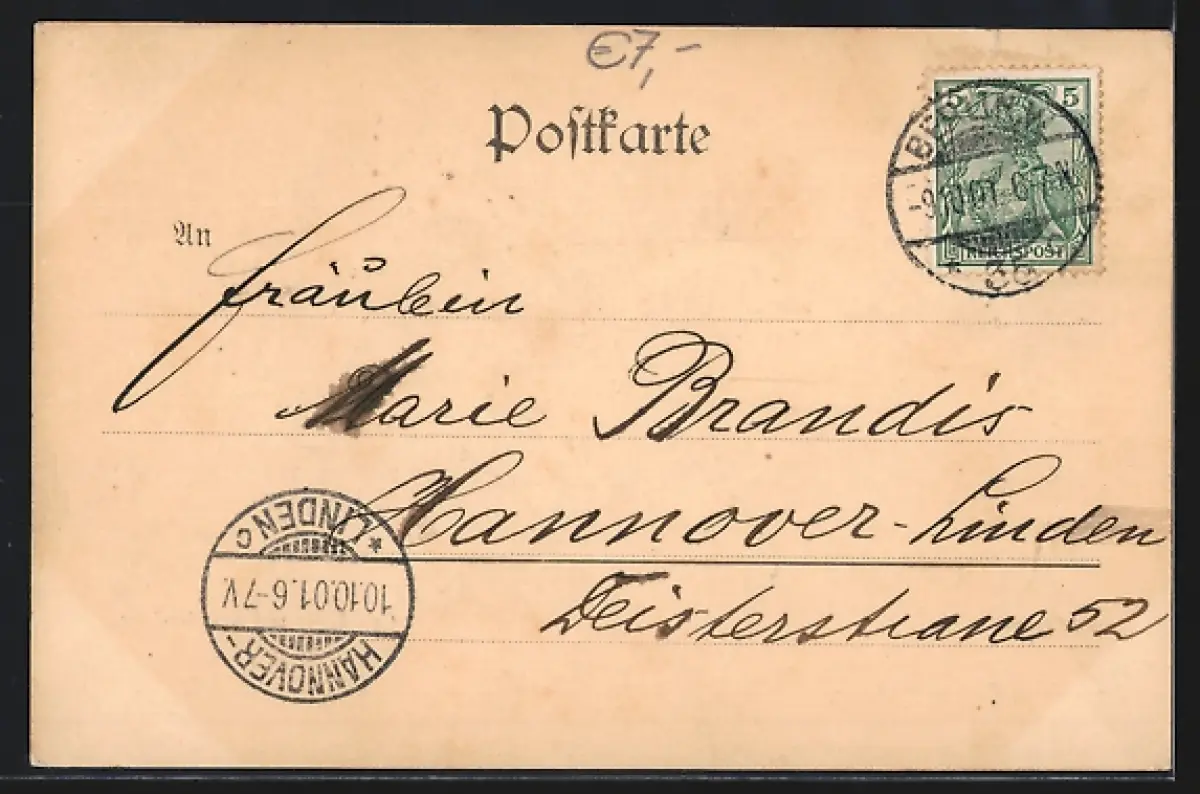 €7,-
Postkarte
5 5
BERLIN W.
9.10.01. 6-7 N.
* 35
REICHSPOST
An
Fräulein
Marie Brandis
Hannover-Linden
Deisterstrane 52
* LINDEN C
10.10.01. 6-7 V.
HANNOVER-